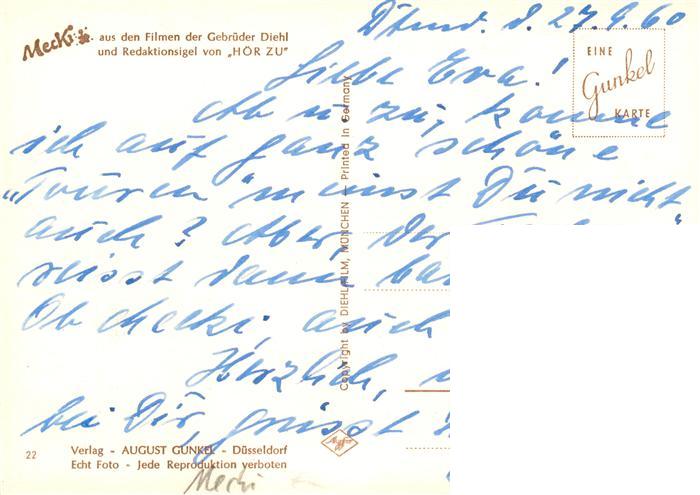 Mecki aus den Filmen der Gebrüder Diehl
und Redaktionsigel von „HÖR ZU"
EINE
Gunkel
KARTE
Dtmd. d. 27.9.60
Liebe Eva!
Ab u. zu, komme
ich auf ganz schöne
„Touren" meinst Du nicht
auch? Aber, der
reisst dann
Ob Mecki auch
Herzlich,
bei Dir, grüsst
Copyright by DIEHL-FILM, MÜNCHEN — Printed in Germany
Agfa
22
Verlag - AUGUST GUNKEL - Düsseldorf
Echt Foto - Jede Reproduktion verboten
Mecki